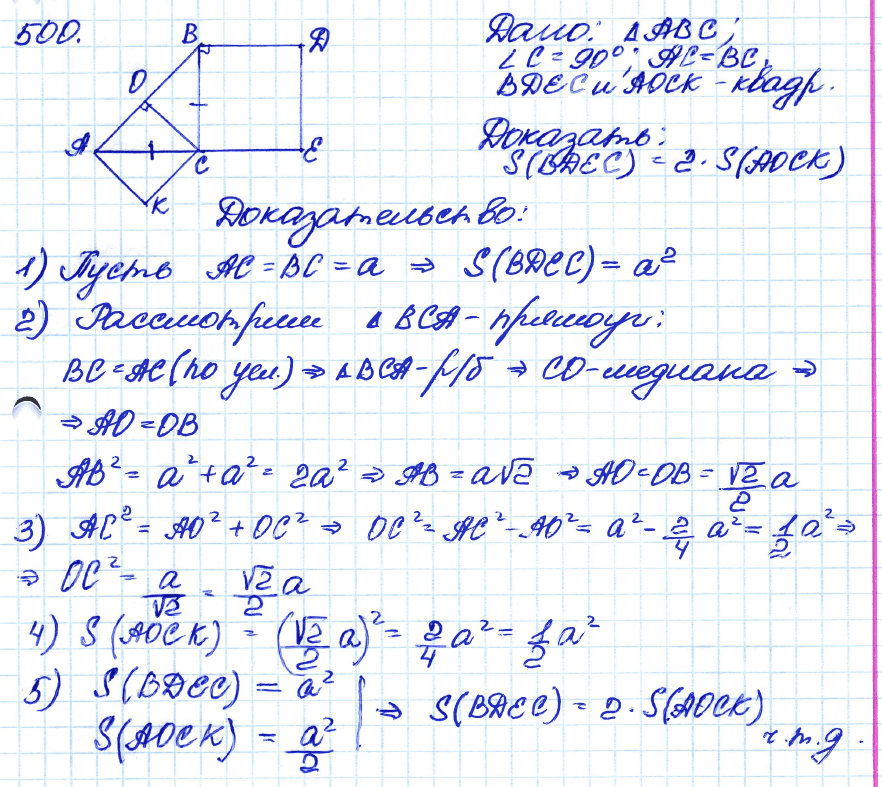 500.
B D
O
A C E
K
Дано: ΔABC;
∠C = 90°; AC = BC,
BDEC и AOCK - квадр.
Доказать:
S(BDEC) = 2 · S(AOCK)
Доказательство:
1) Пусть AC = BC = a ⇒ S(BDEC) = a²
2) Рассмотрим Δ BCA - прямоуг:
BC = AC (по усл.) ⇒ ΔBCA - р/б ⇒ CO - медиана ⇒
⇒ AO = OB
AB² = a² + a² = 2a² ⇒ AB = a√2 ⇒ AO = OB = √2/2 a
3) AC² = AO² + OC² ⇒ OC² = AC² - AO² = a² - 2/4 a² = 1/2 a² ⇒
⇒ OC² = a/√2 = √2/2 a
4) S(AOCK) = (√2/2 a)² = 2/4 a² = 1/2 a²
5) S(BDEC) = a² | ⇒ S(BDEC) = 2 · S(AOCK)
S(AOCK) = a²/2
ч.т.д.